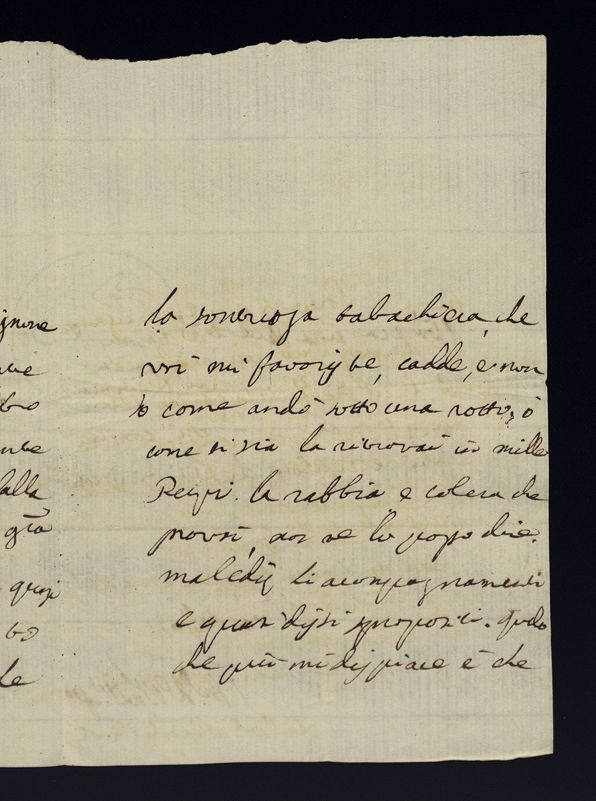 gnore
la sontuosa tabachiera, che
voi mi favoriste, cadde, e non
so come andò sotto una rotta, ò
come si sia la ritrovai in mille
dalla
Pezzi. la rabbia e colera che
gra
provai, non ve lo posso dire.
maledij li acompagnamenti
quasi
e quasi dissi spropositi. quelo
to
che più mi dispiace è che
le